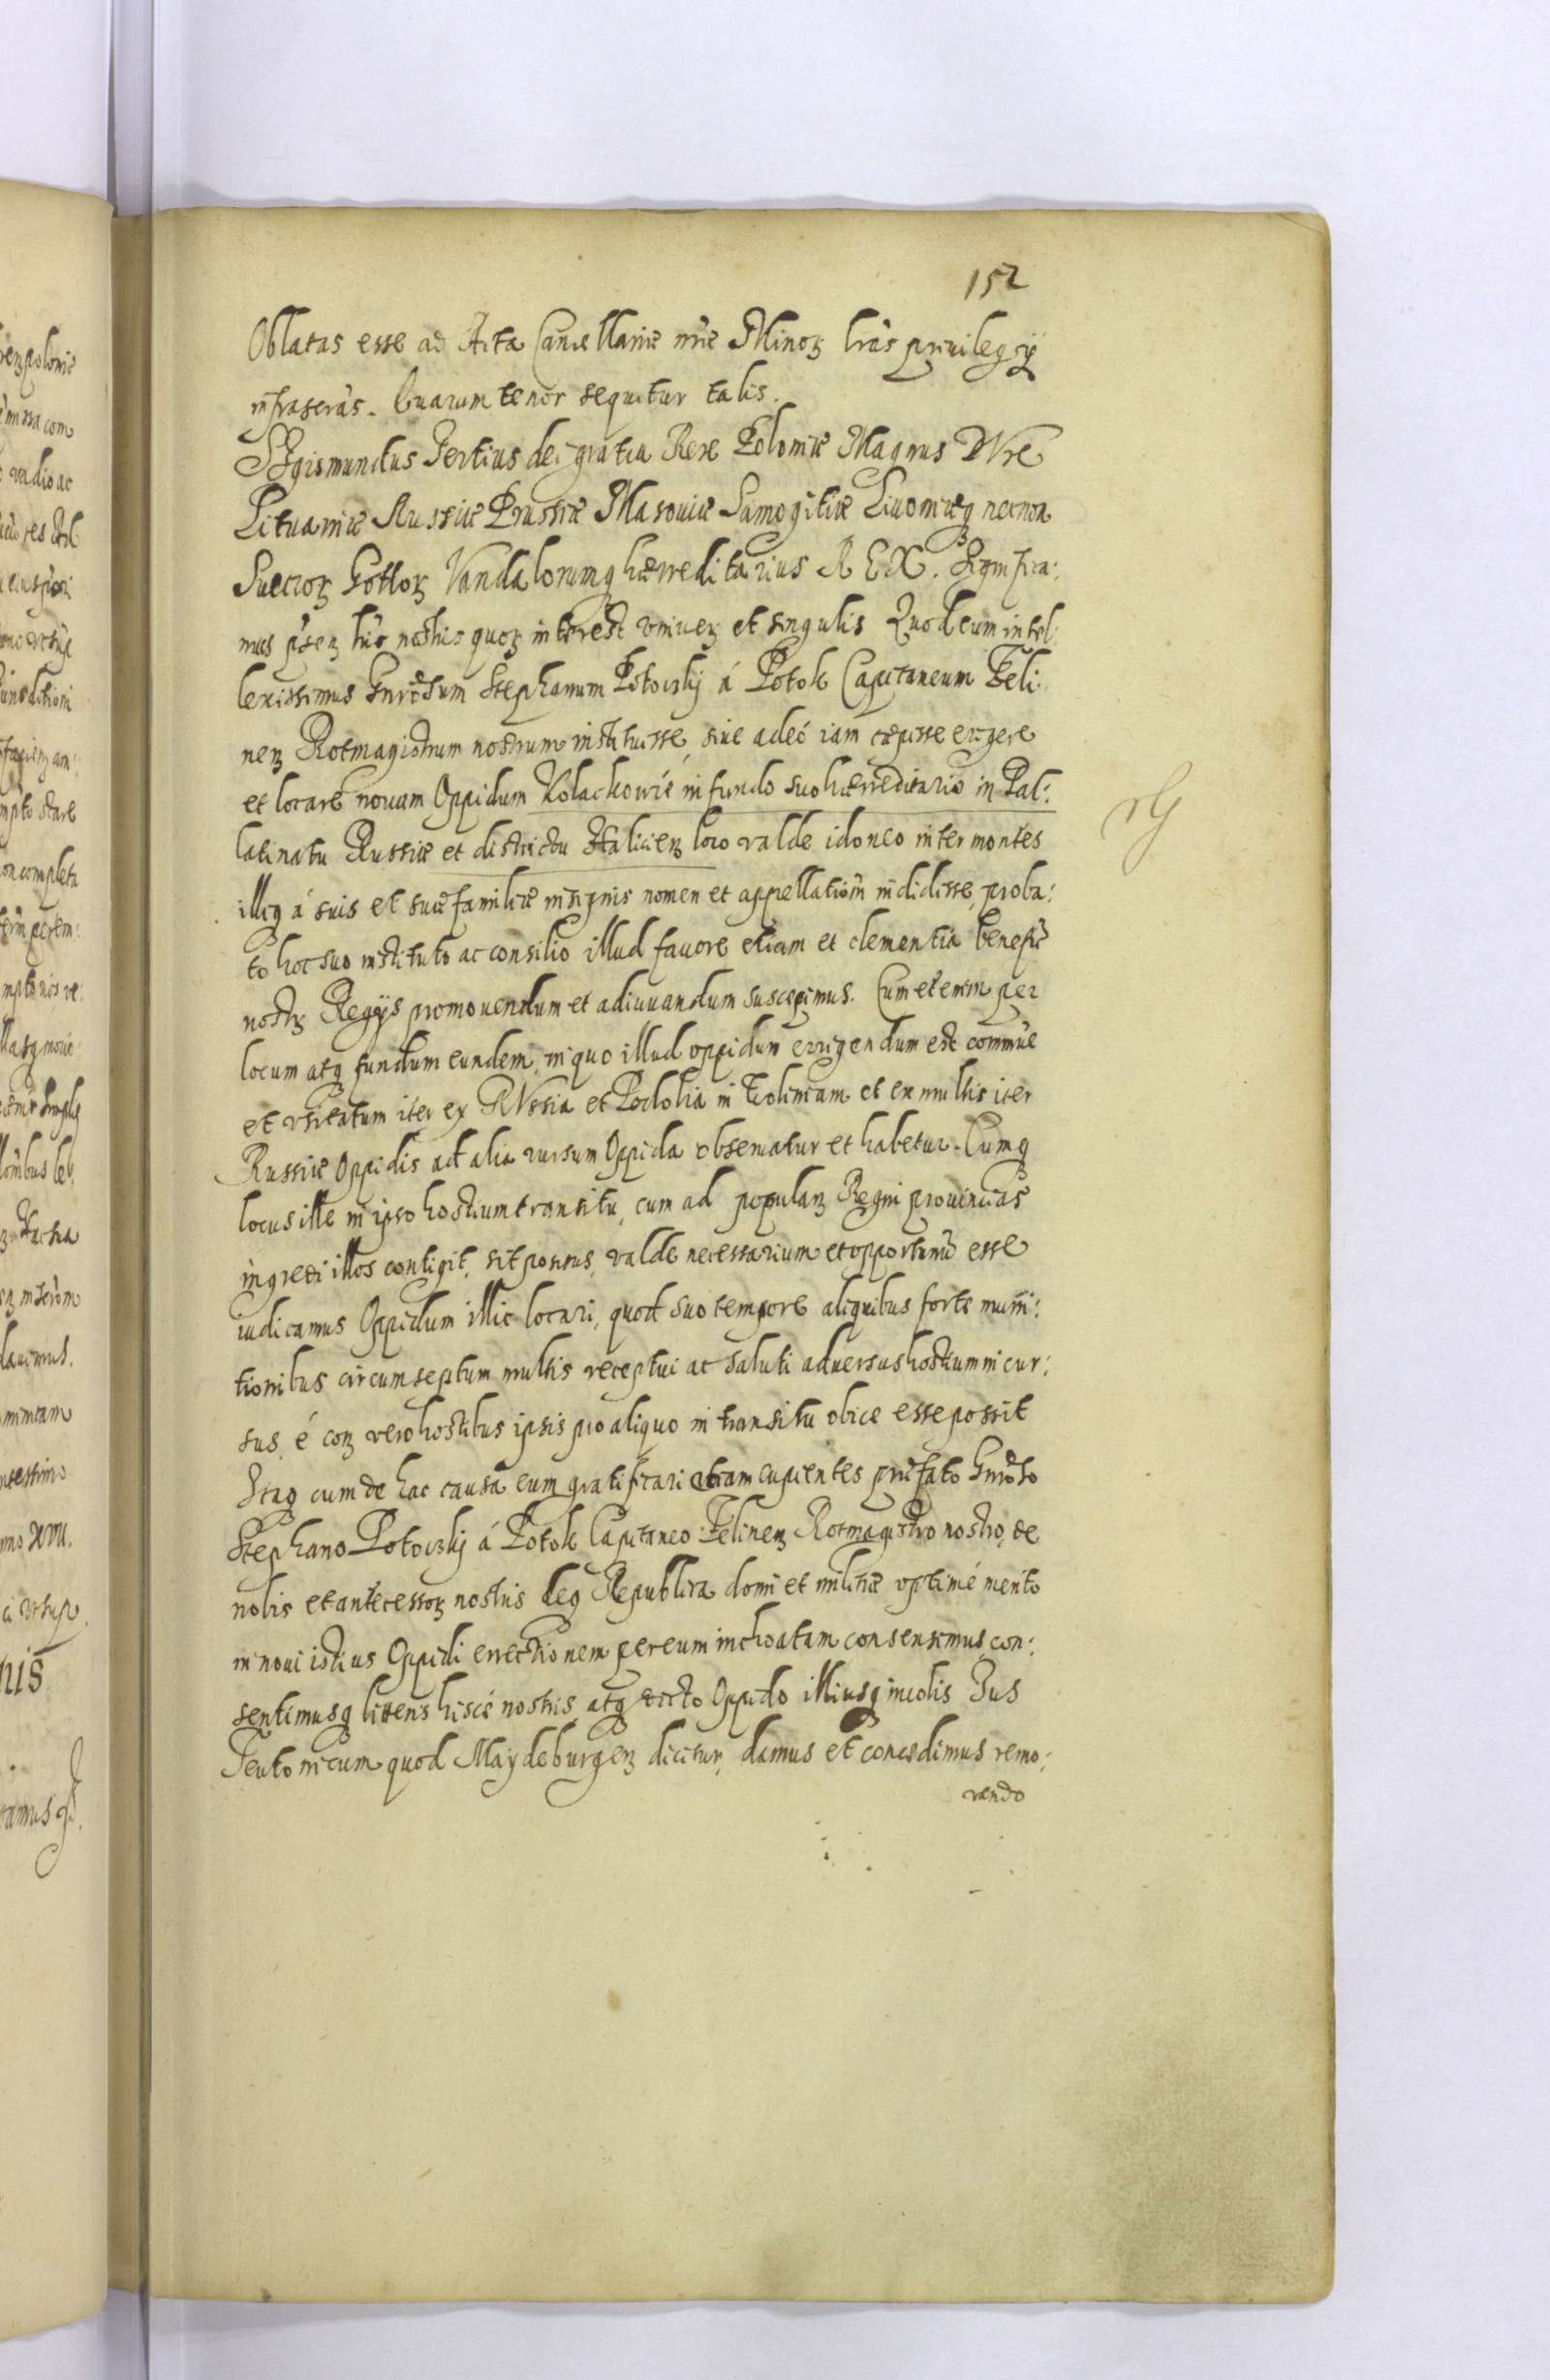 152
Oblatas esse ad Acta Cancellariæ nræ Minorꝫ lras priuilegÿ
infrascras. Quarum tenor sequitur talis.
SIgismundus Tertius dei gratia Rex Poloniæ Magnus DVx
Lituaniæ Russiæ Prussiæ Masouiæ Samogitiæ Liuoniæqꝫ necnon
Sueciorꝫ Gottorꝫ Vandalorumqꝫ hæreditarius REX. Significa:
mus pñsenꝫ lris nostris quorꝫ interest vniuerꝫ et singulis Quod cum intel:
lexissimus Gnrosum Stephanum Potocskj á Potok Capitaneum Feli:
nenꝫ Rotmagistrum nostrum instituisse, siue adeó iam cæpisse erigere
et locare nouam Oppidum Kolackowcé in fundo suo hæreditario in Pal:
latinatu Russiæ et districtu Halicienꝫ loco valde idoneo inter montes
illiqꝫ á suis et suæ familiæ insignis nomen et appellatiom indidisse, proba:
to hoc suo instituto ac consilio illud fauore etiam et clementia benefi
nostrꝫ Regÿs promouendum et adiuuandum suscepimus. Cum etenim per
locum atqꝫ fundum eundem, in quo illud oppidum errigendum est commue
et vsitatum iter ex RVssia et Podolia in et ex multis iter
Russiæ Oppidis ad alia rursum Oppida obseruatur et habetur. Cumqꝫ
locus ille in ipso hostium transitu, cum ad popularꝫ Regni prouincias
ingredi illos contigit, sit positus, valde necessarium et opportunũ esse
iudicamus Oppidum illic locari, quod suo tempore aliquibus forte muni:
tionibus circumseptum multis receptui ac saluti aduersus hostium incur:
sus, é conꝫ vero hostibus ipsis pro aliquo in transitu obice esse possit
Itaqꝫ cum de hac causa eum gratificari etiam cupientes præfato Gnroso
Stephano Potocskj á Potok Capitaneo Felinenꝫ Rotmagistro nostro, de
nobis et antecessorꝫ nostris deqꝫ Republica domi et militiæ optimé merito
in noui istius Oppidi errectionem per eum inchoatam consensimus, con:
sentimusqꝫ litteris hiscé nostris, atqꝫ dicto Oppido illiusqꝫ incolis Ius
Teutonicum quod Maydeburgenꝫ dicitur, damus et concedimus remo:
uendo